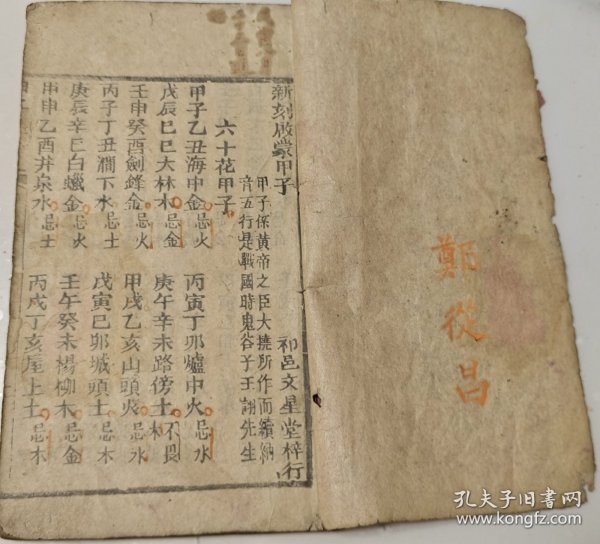 鄭從昌
新刻啟蒙甲子
和邑文星堂梓行
甲子係黃帝之臣大撓所作而續納
音五行是戰國時鬼谷子王詡先生
六十花甲子
甲子乙丑海中金忌火
丙寅丁卯爐中火忌水
戊辰己巳大林木忌金
庚午辛未路傍土不畏木
壬申癸酉劍鋒金忌火
甲戌乙亥山頭火忌水
丙子丁丑澗下水忌土
戊寅己卯城頭土忌木
庚辰辛巳白蠟金忌火
壬午癸未楊柳木忌金
甲申乙酉井泉水忌土
丙戌丁亥屋上土忌木
孔夫子旧书网
www.kongfz.com